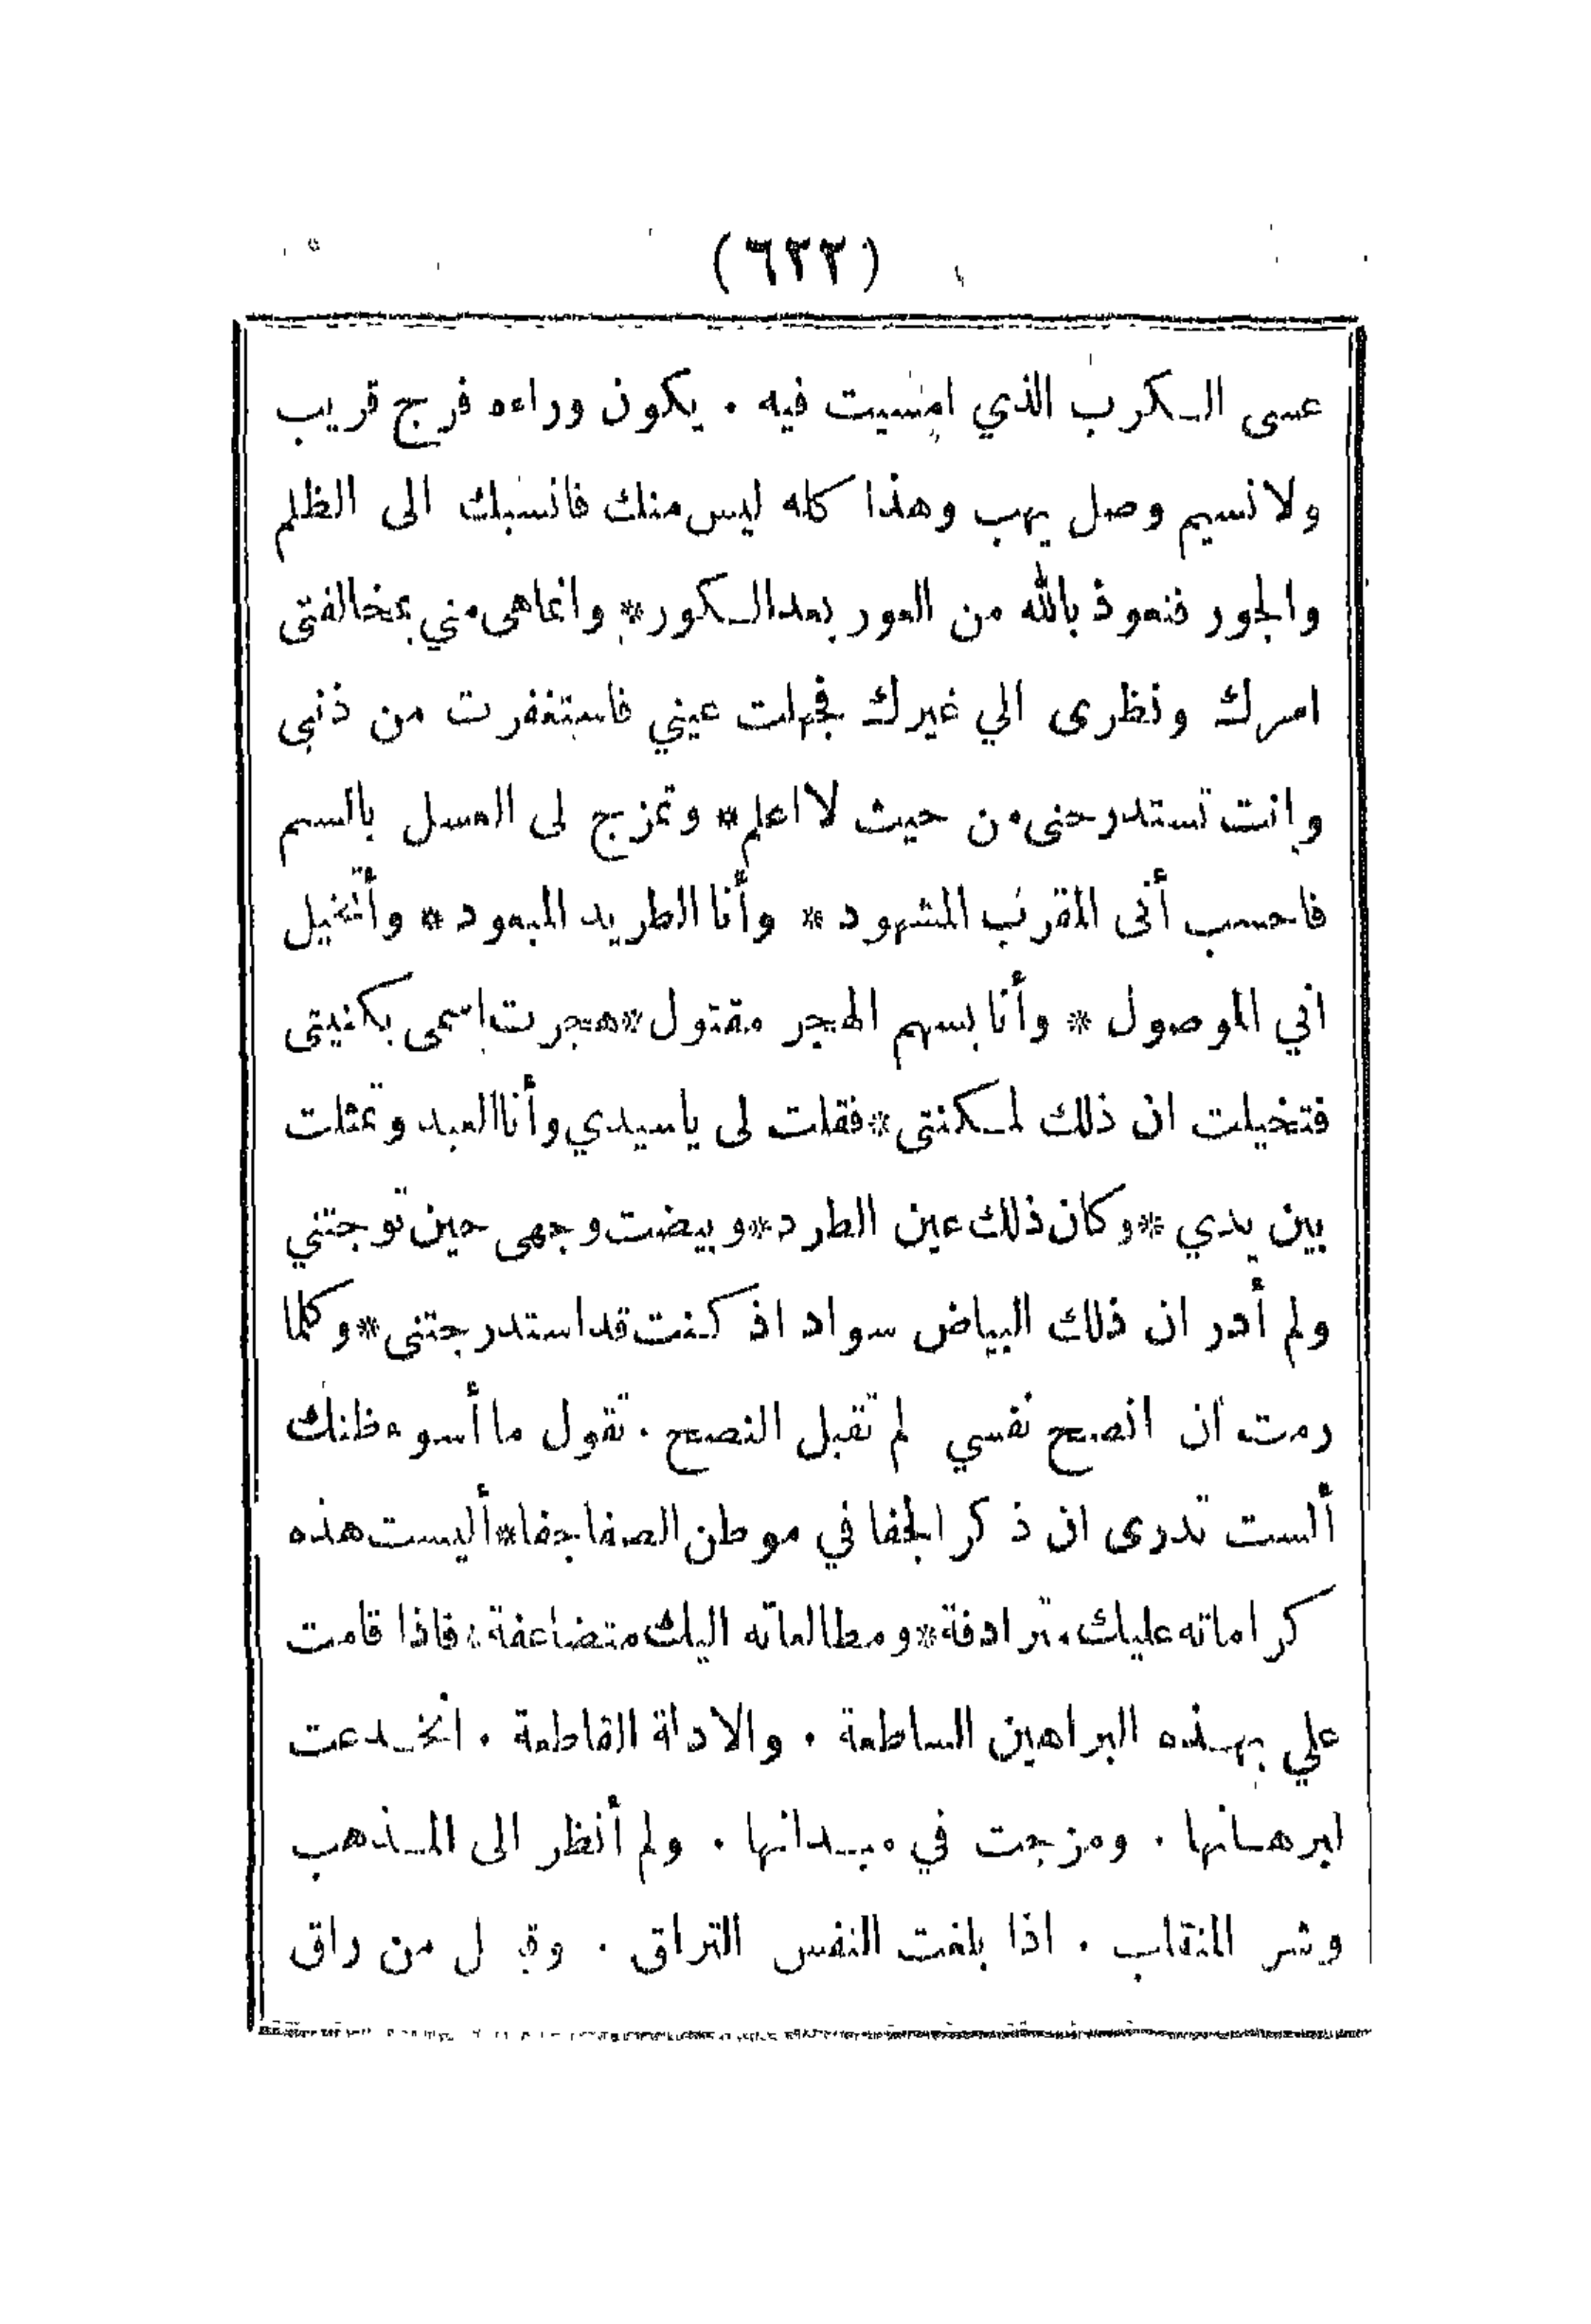 (٦٣٣)
عسى الكرب الذي امسيت فيه . يكون وراءه فرج قريب
ولا نسيم وصل يهب وهذا كله ليس منك فانسبك الى الظلم
والجور فنعوذ بالله من الحور بعد الكور * وانما هى مني بمخالفتى
امرك ونظرى الي غيرك فجهلت عيني فاستغفرت من ذنبي
وانت تستدرجنى من حيث لا اعلم * وتمزج لى العسل بالسم
فاحسب أنى المقرب المشهود * وأنا الطريد المبعود * وأتخيل
اني الموصول * وأنا بسهم الهجر مقتول * هجرت اسمى بكنيتى
فتخيلت ان ذلك لمكنتى * فقلت لى يا سيدي وأنا العبد وتمثلت
بين يدي * وكان ذلك عين الطرد * وبيضت وجهى حين توجتني
ولم أدر ان ذلك البياض سواد اذ كنت قد استدرجتنى * وكلما
رمت أن انصح نفسي لم تقبل النصح . تقول ما أسوء ظنك
ألست تدرى ان ذكر الجفا في موطن الصفا جفا * أليست هذه
كراماته عليك مترادفة * ومطالعاته اليك متضاعفة * فاذا قامت
علي بهذه البراهين الساطعة . والادلة القاطعة . انخدعت
لبرهانها . ومزجت في ميدانها . ولم أنظر الى المذهب
وشر المنقلب . اذا بلغت النفس التراق . وقيل من راق